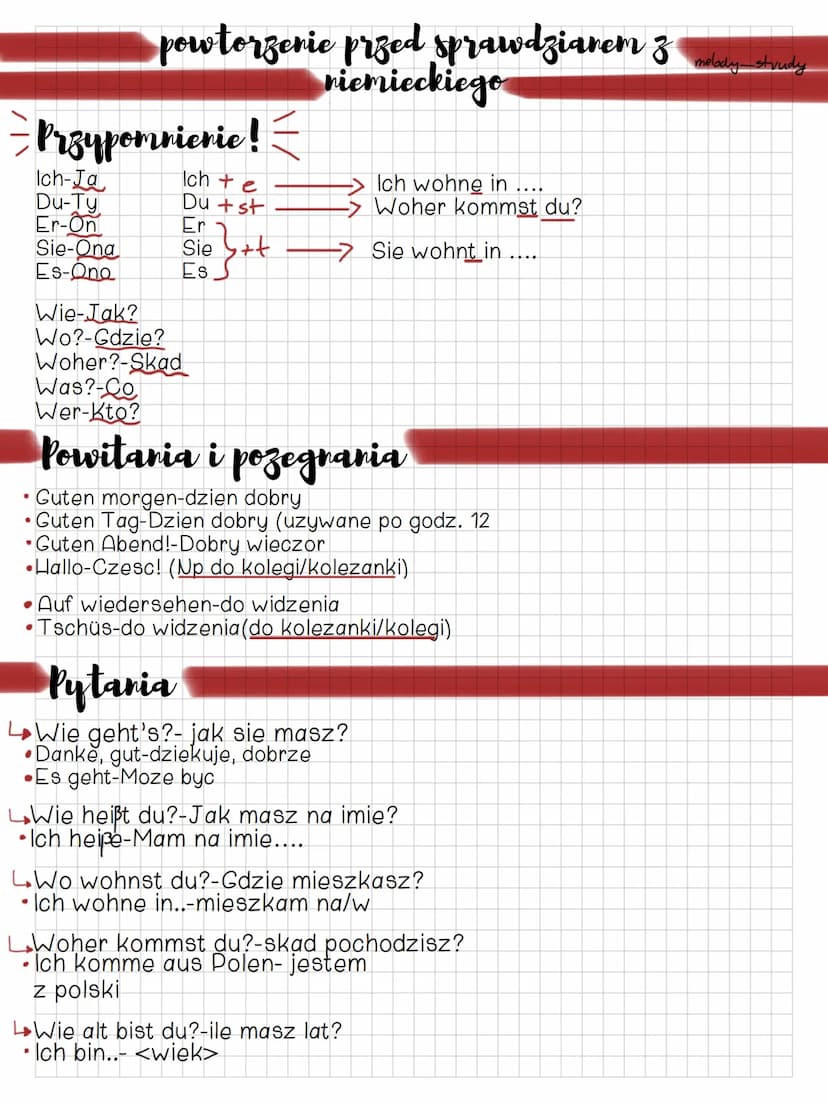 powtorzenie przed sprawdzianem z
melody_strudy
niemieckiego
Przypomnienie!
Ich-Ja
Du-Ty
Er-On
Sie-Ona
Es-Ono
Ich + e → Ich wohne in ....
Du +st → Woher kommst du?
Er
Sie } +t → Sie wohnt in ....
Es
Wie-Jak?
Wo?-Gdzie?
Woher?-Skad
Was?-Co
Wer-Kto?
Powitania i pozegnania
• Guten morgen-dzien dobry
• Guten Tag-Dzien dobry (uzywane po godz. 12
• Guten Abend!-Dobry wieczor
• Hallo-Czesc! (Np do kolegi/kolezanki)
• Auf wiedersehen-do widzenia
• Tschüs-do widzenia(do kolezanki/kolegi)
Pytania
↳Wie geht's?- jak sie masz?
• Danke, gut-dziekuje, dobrze
• Es geht-Moze byc
↳Wie heißt du?-Jak masz na imie?
• Ich heiße-Mam na imie....
↳Wo wohnst du?-Gdzie mieszkasz?
• Ich wohne in..-mieszkam na/w
↳Woher kommst du?-skad pochodzisz?
• Ich komme aus Polen- jestem
z polski
↳Wie alt bist du?-ile masz lat?
• Ich bin..- <wiek>